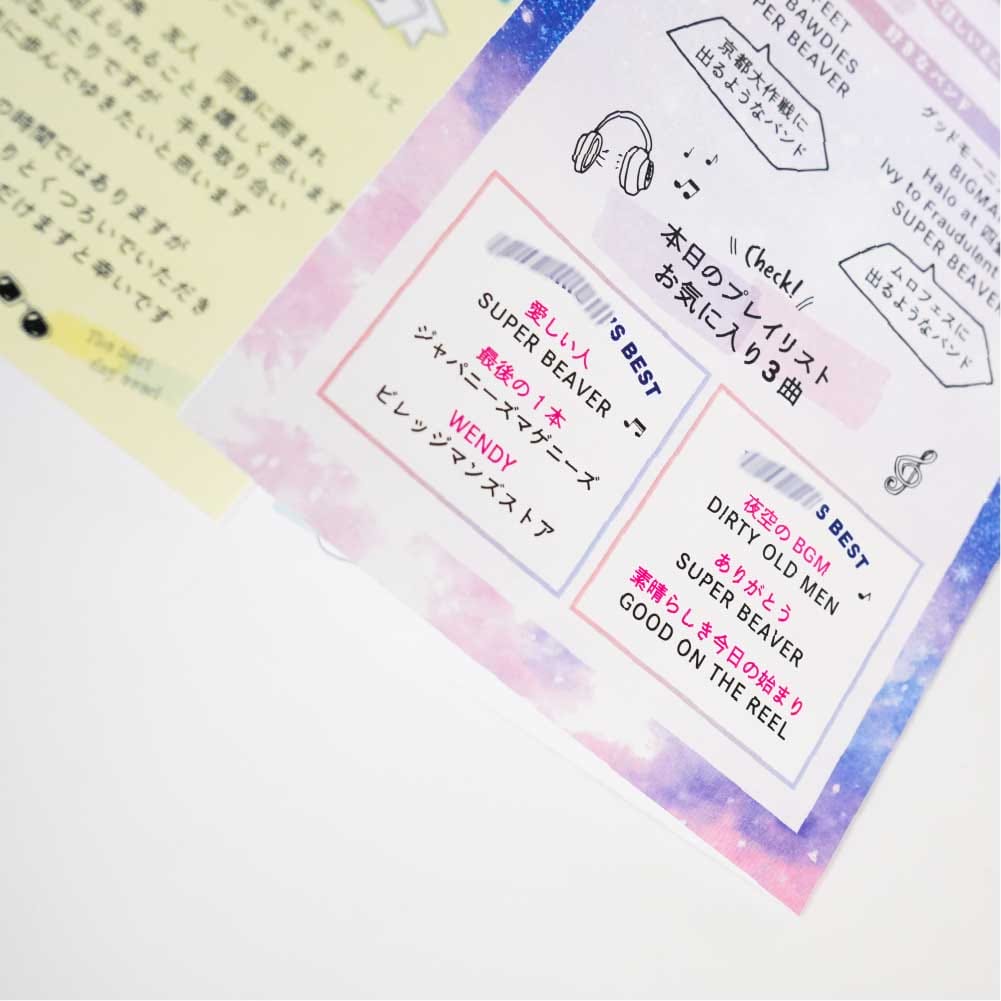 くださりまして
ございます
友人 同僚に囲まれ
られることを嬉しく思います
なふたりですが 手を取り合い
に歩んでゆきたいと思います
の時間ではありますが
りとくつろいでいただき
だけますと幸いです
FEET
BAWDIES
SUPER BEAVER
京都大作戦に
出るようなバンド
好きなバンド
グッドモーニ
BIGMA
Halo at
Ivy to Fraudulent
SUPER BEAVER
ムロフェスに
出るようなバンド
Check!
本日のプレイリスト
お気に入り3曲
'S BEST
愛しい人
SUPER BEAVER
最後の1本
ジャパニーズマゲニーズ
WENDY
ビレッジマンズストア
'S BEST
夜空のBGM
DIRTY OLD MEN
ありがとう
SUPER BEAVER
素晴らしき今日の始まり
GOOD ON THE REEL